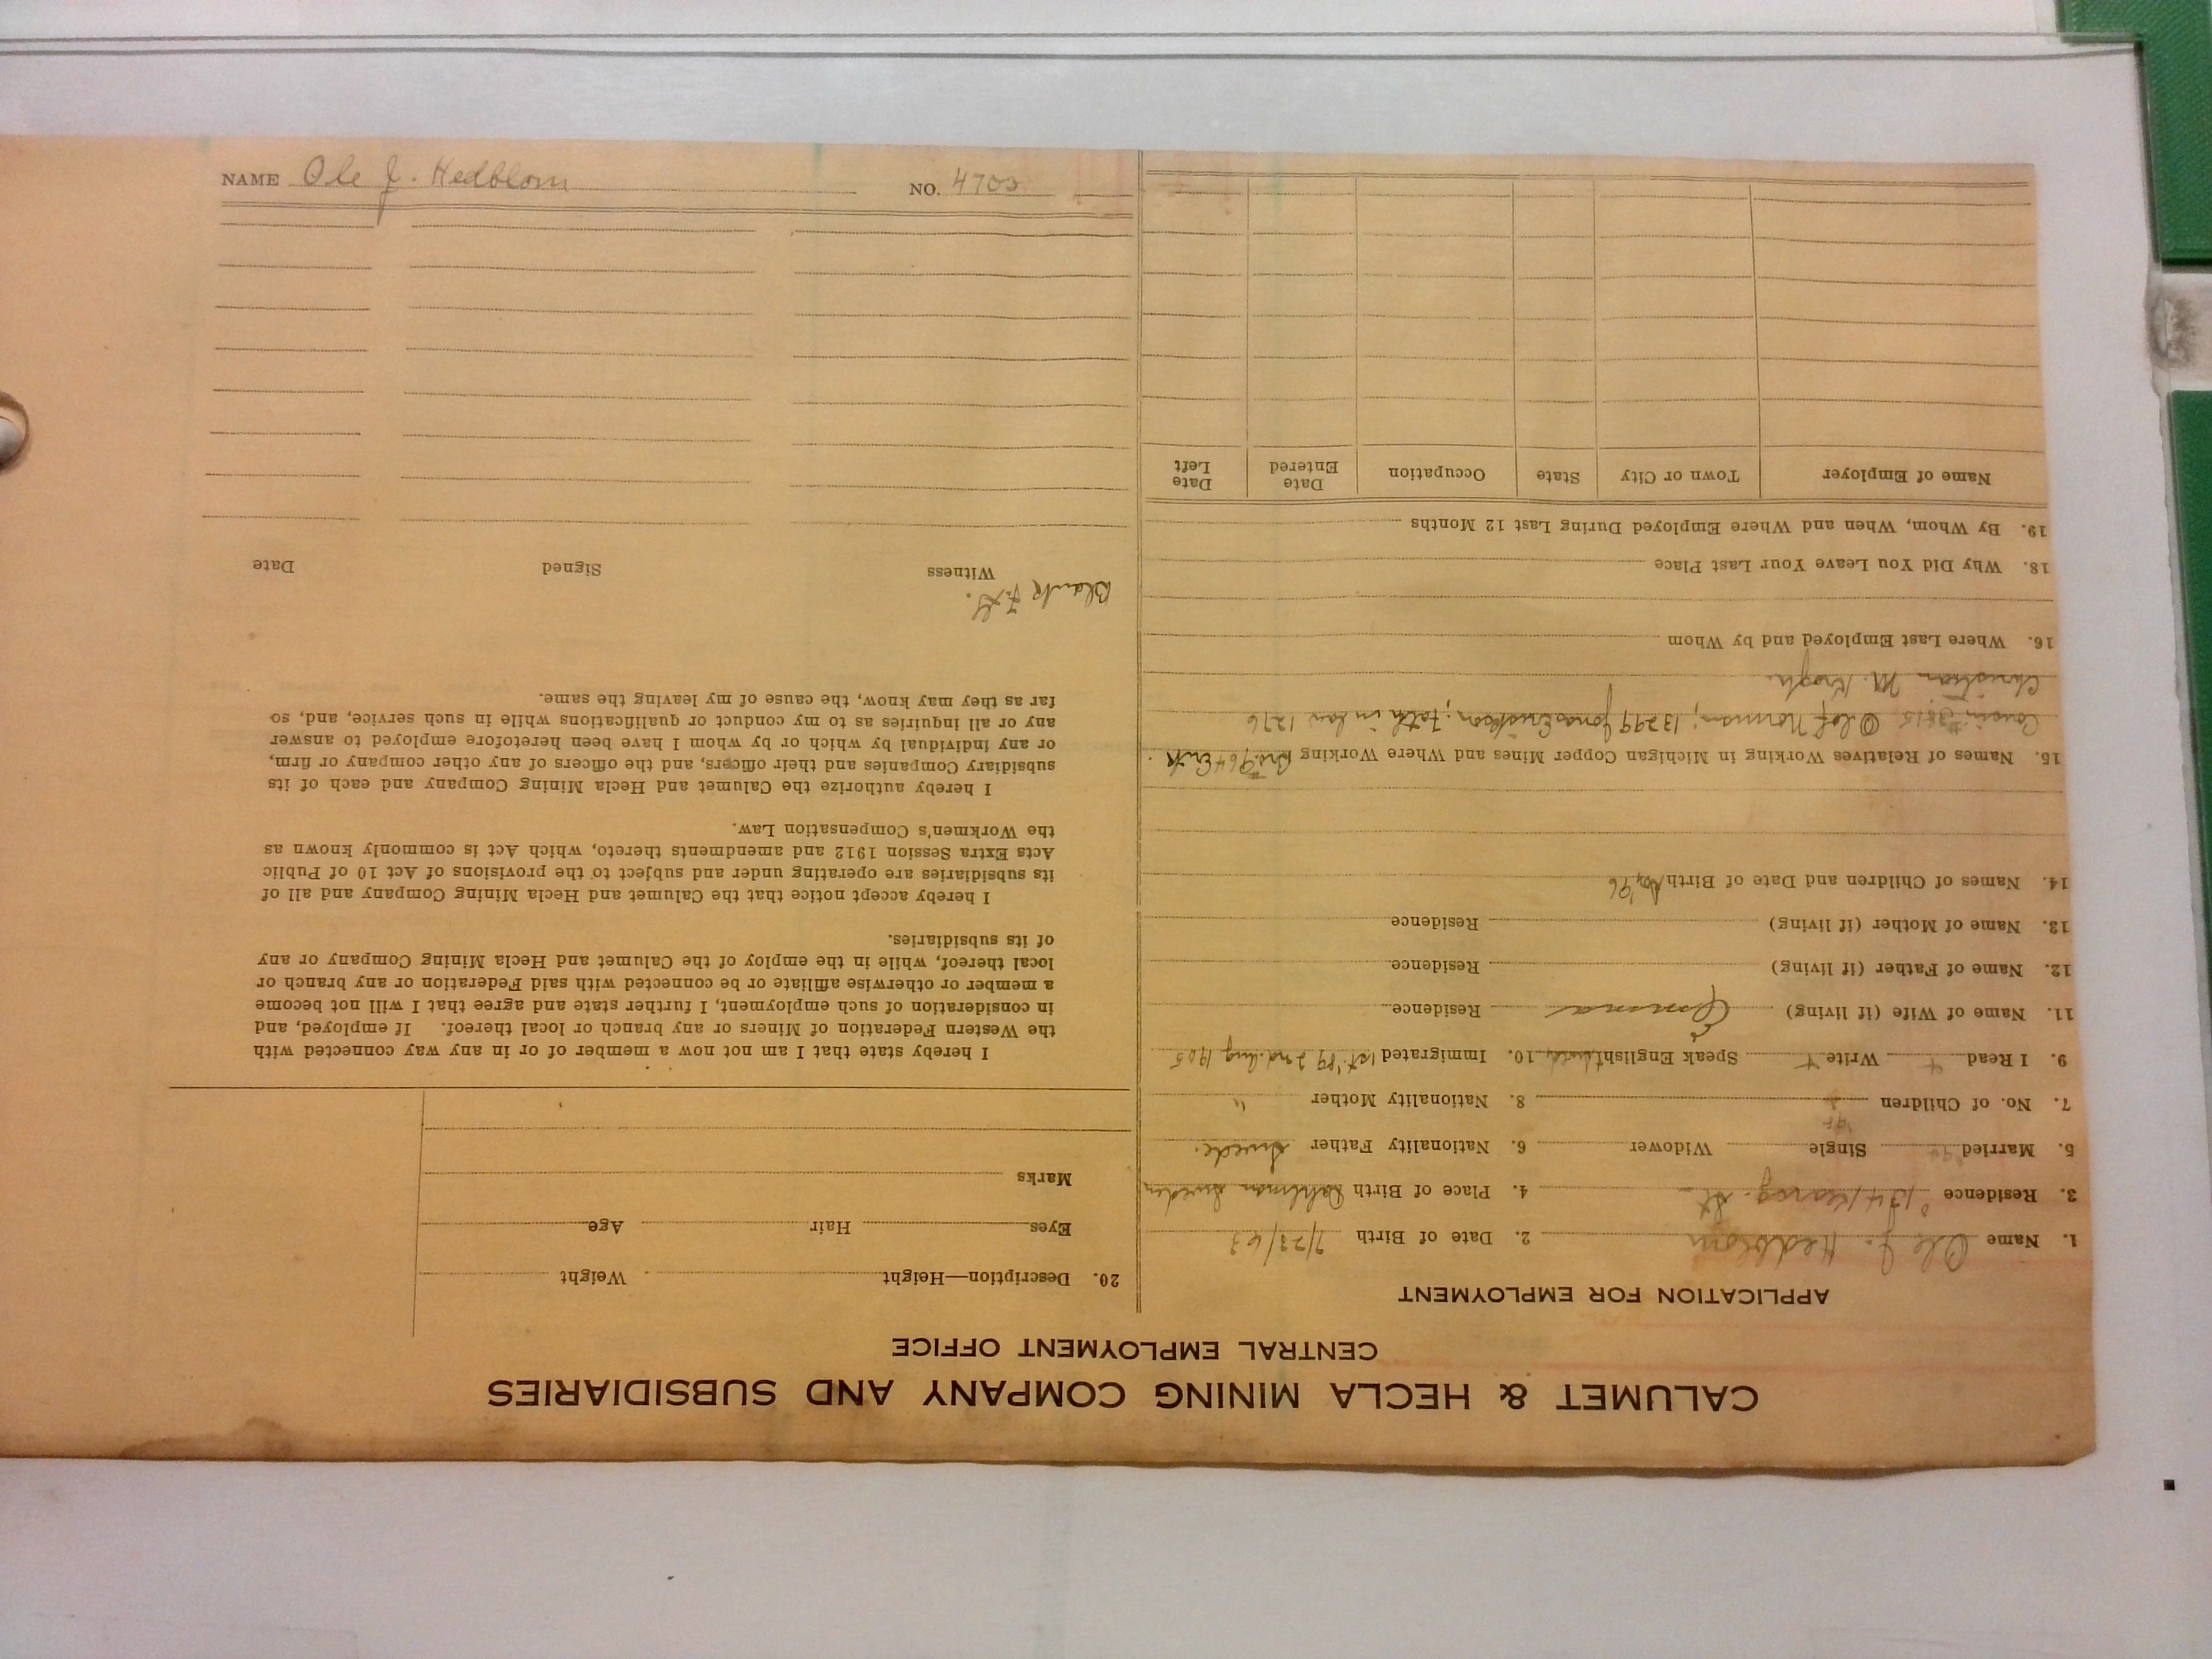 CALUMET & HECLA MINING COMPANY AND SUBSIDIARIES
CENTRAL EMPLOYMENT OFFICE
APPLICATION FOR EMPLOYMENT
1. Name Ole J. Hedblom 2. Date of Birth
3. Residence St. 4. Place of Birth Sweden
5. Married Single Widower 6. Nationality Father Swede.
7. No. of Children 8. Nationality Mother "
9. I Read Write Speak English 10. Immigrated 1st. '89 2nd. Aug 1905
11. Name of Wife (if living) Emma Residence
12. Name of Father (if living) Residence
13. Name of Mother (if living) Residence
14. Names of Children and Date of Birth
15. Names of Relatives Working in Michigan Copper Mines and Where Working Bro. #964 Erik
Cousin #3815 Olof Norman; 13299 Jonas Erickson; Fath in law 1276
Christian M. Krogh.
16. Where Last Employed and by Whom
18. Why Did You Leave Your Last Place
19. By Whom, When and Where Employed During Last 12 Months
Name of Employer Town or City State Occupation Date Entered Date Left
20. Description—Height Weight
Eyes Hair Age
Marks
I hereby state that I am not now a member of or in any way connected with
the Western Federation of Miners or any branch or local thereof. If employed, and
in consideration of such employment, I further state and agree that I will not become
a member or otherwise affiliate or be connected with said Federation or any branch or
local thereof, while in the employ of the Calumet and Hecla Mining Company or any
of its subsidiaries.
I hereby accept notice that the Calumet and Hecla Mining Company and all of
its subsidiaries are operating under and subject to the provisions of Act 10 of Public
Acts Extra Session 1912 and amendments thereto, which Act is commonly known as
the Workmen's Compensation Law.
I hereby authorize the Calumet and Hecla Mining Company and each of its
subsidiary Companies and their officers, and the officers of any other company or firm,
or any individual by which or by whom I have been heretofore employed to answer
any or all inquiries as to my conduct or qualifications while in such service, and, so
far as they may know, the cause of my leaving the same.
Blank
Witness Signed Date
NAME Ole J. Hedblom NO.